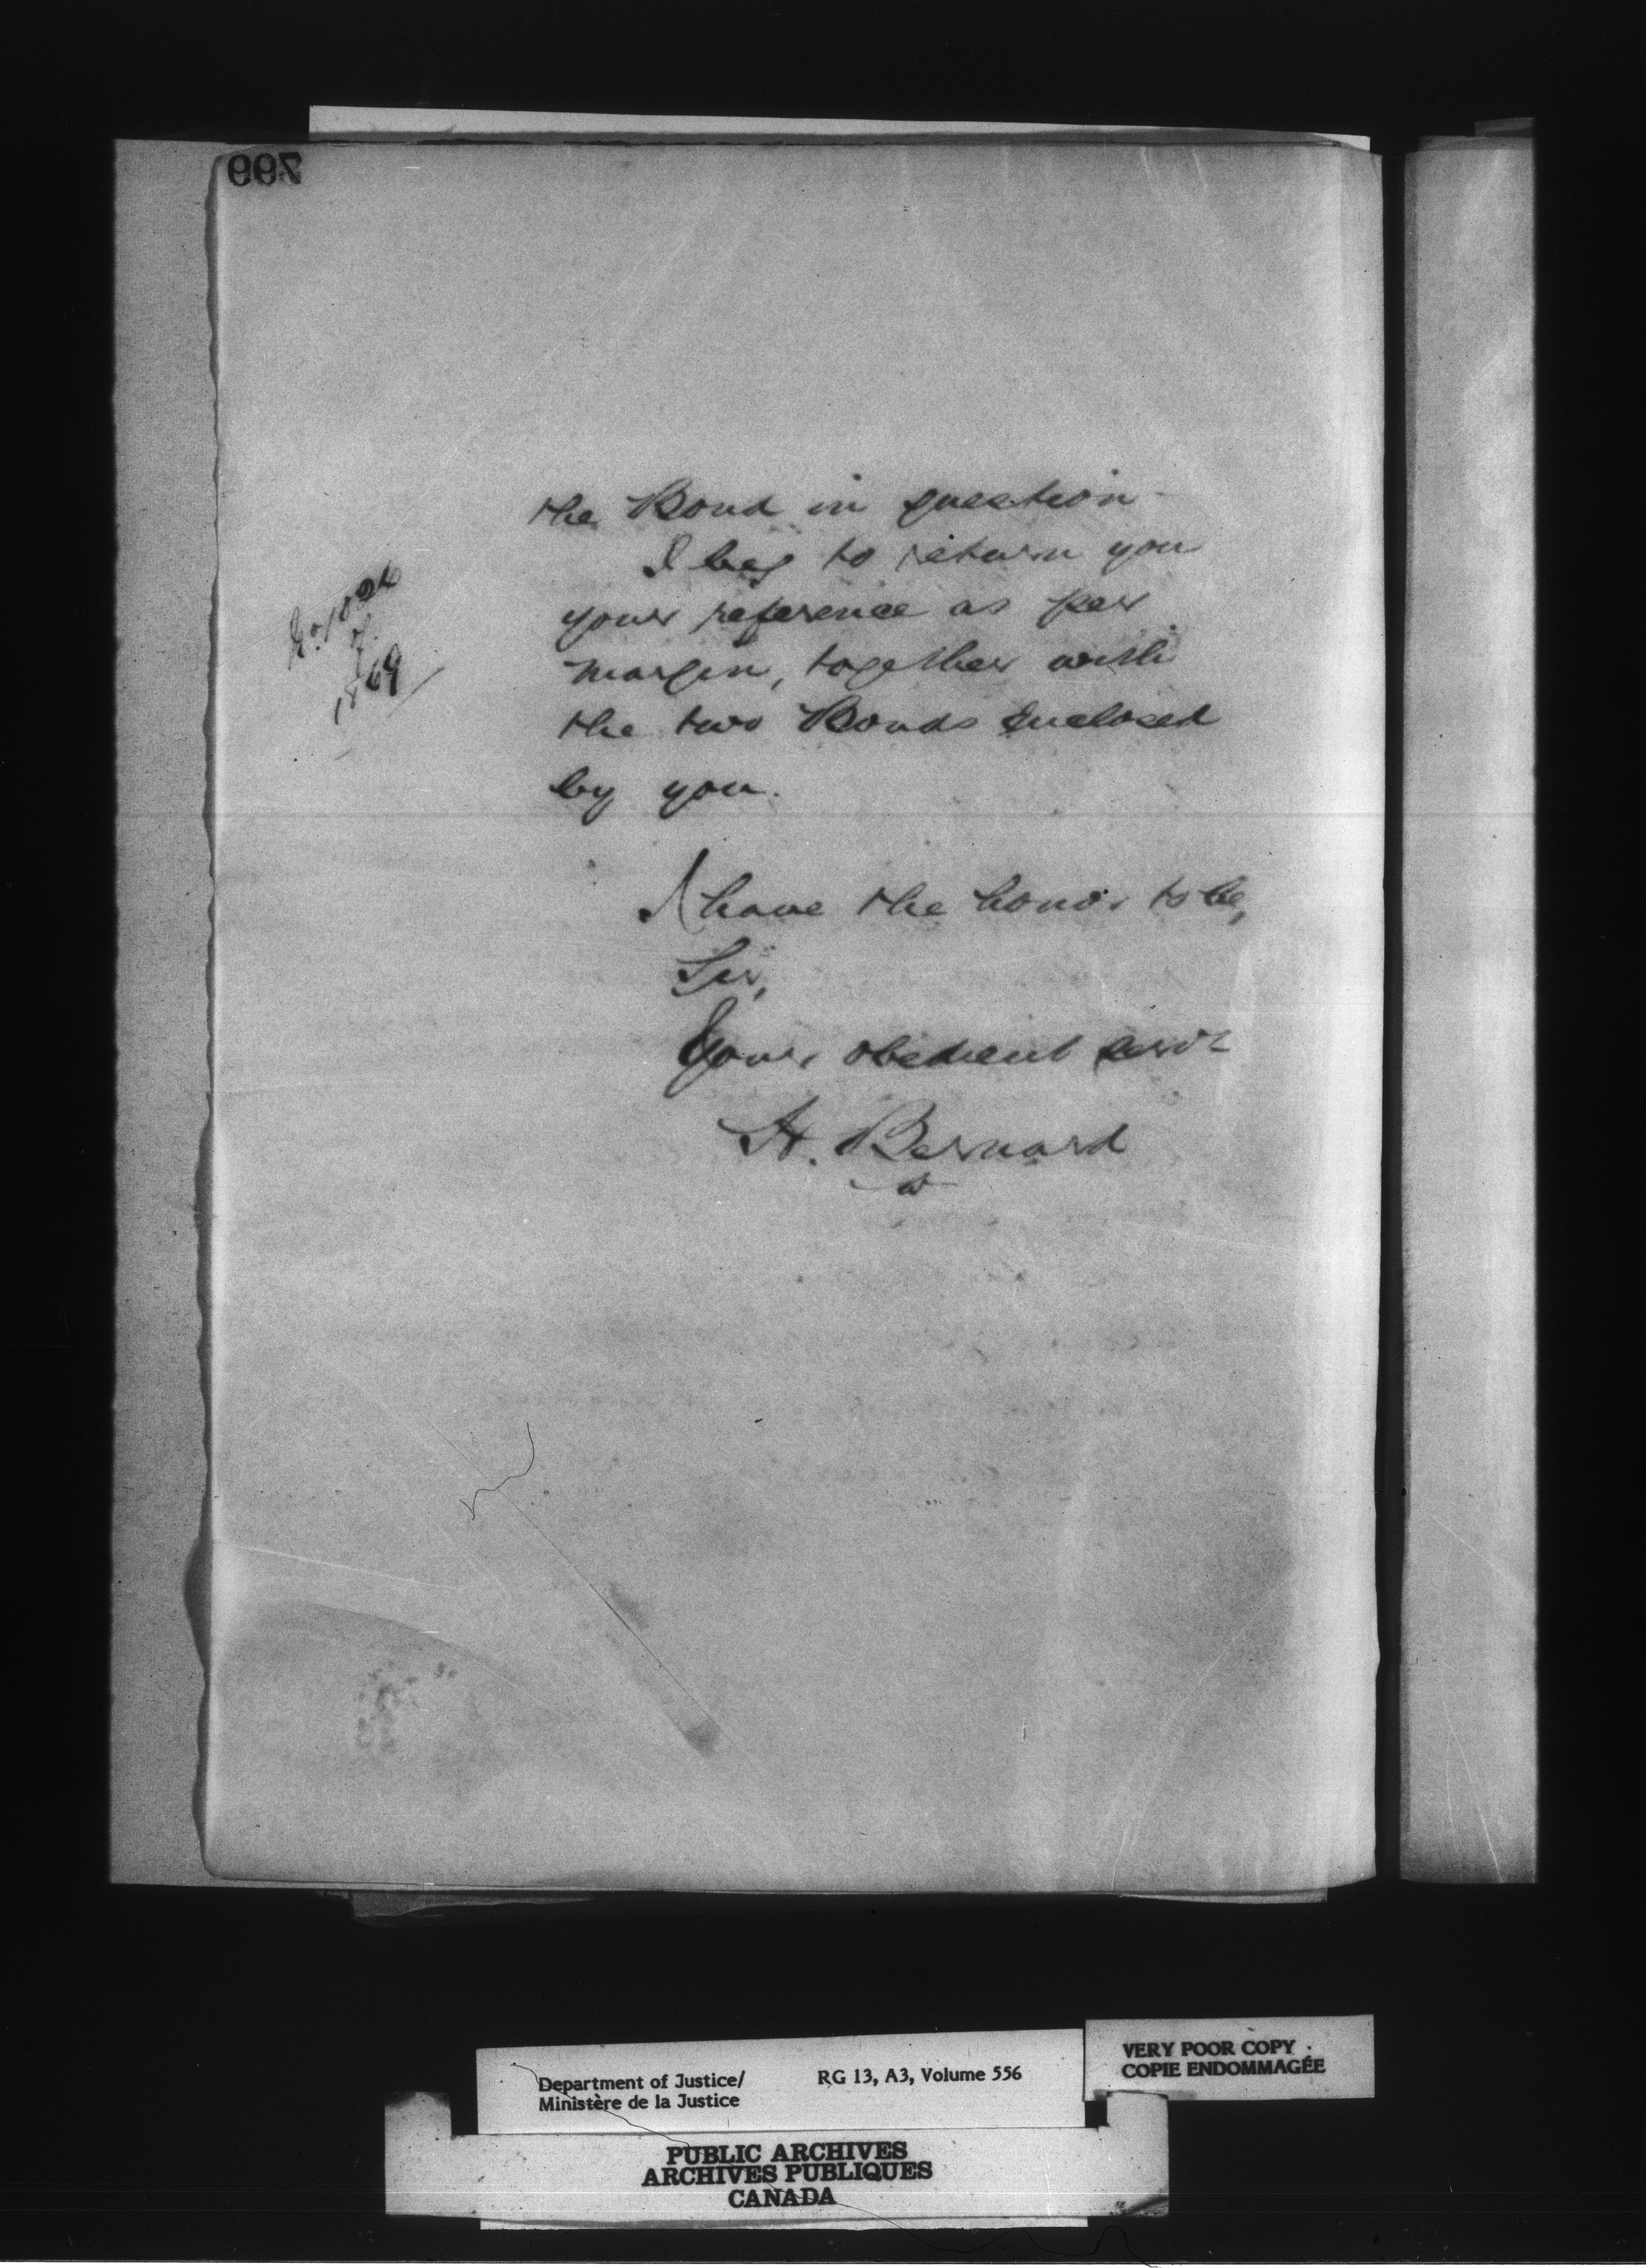 799
the Bond in question
I beg to return you
your reference as per
margin, together with
the two Bonds Enclosed
by you.
of
1869
I have the honor to be,
Sir,
Your obedient servt
H. Bernard
Department of Justice/
Ministère de la Justice
RG 13, A3, Volume 556
VERY POOR COPY
COPIE ENDOMMAGÉE
PUBLIC ARCHIVES
ARCHIVES PUBLIQUES
CANADA